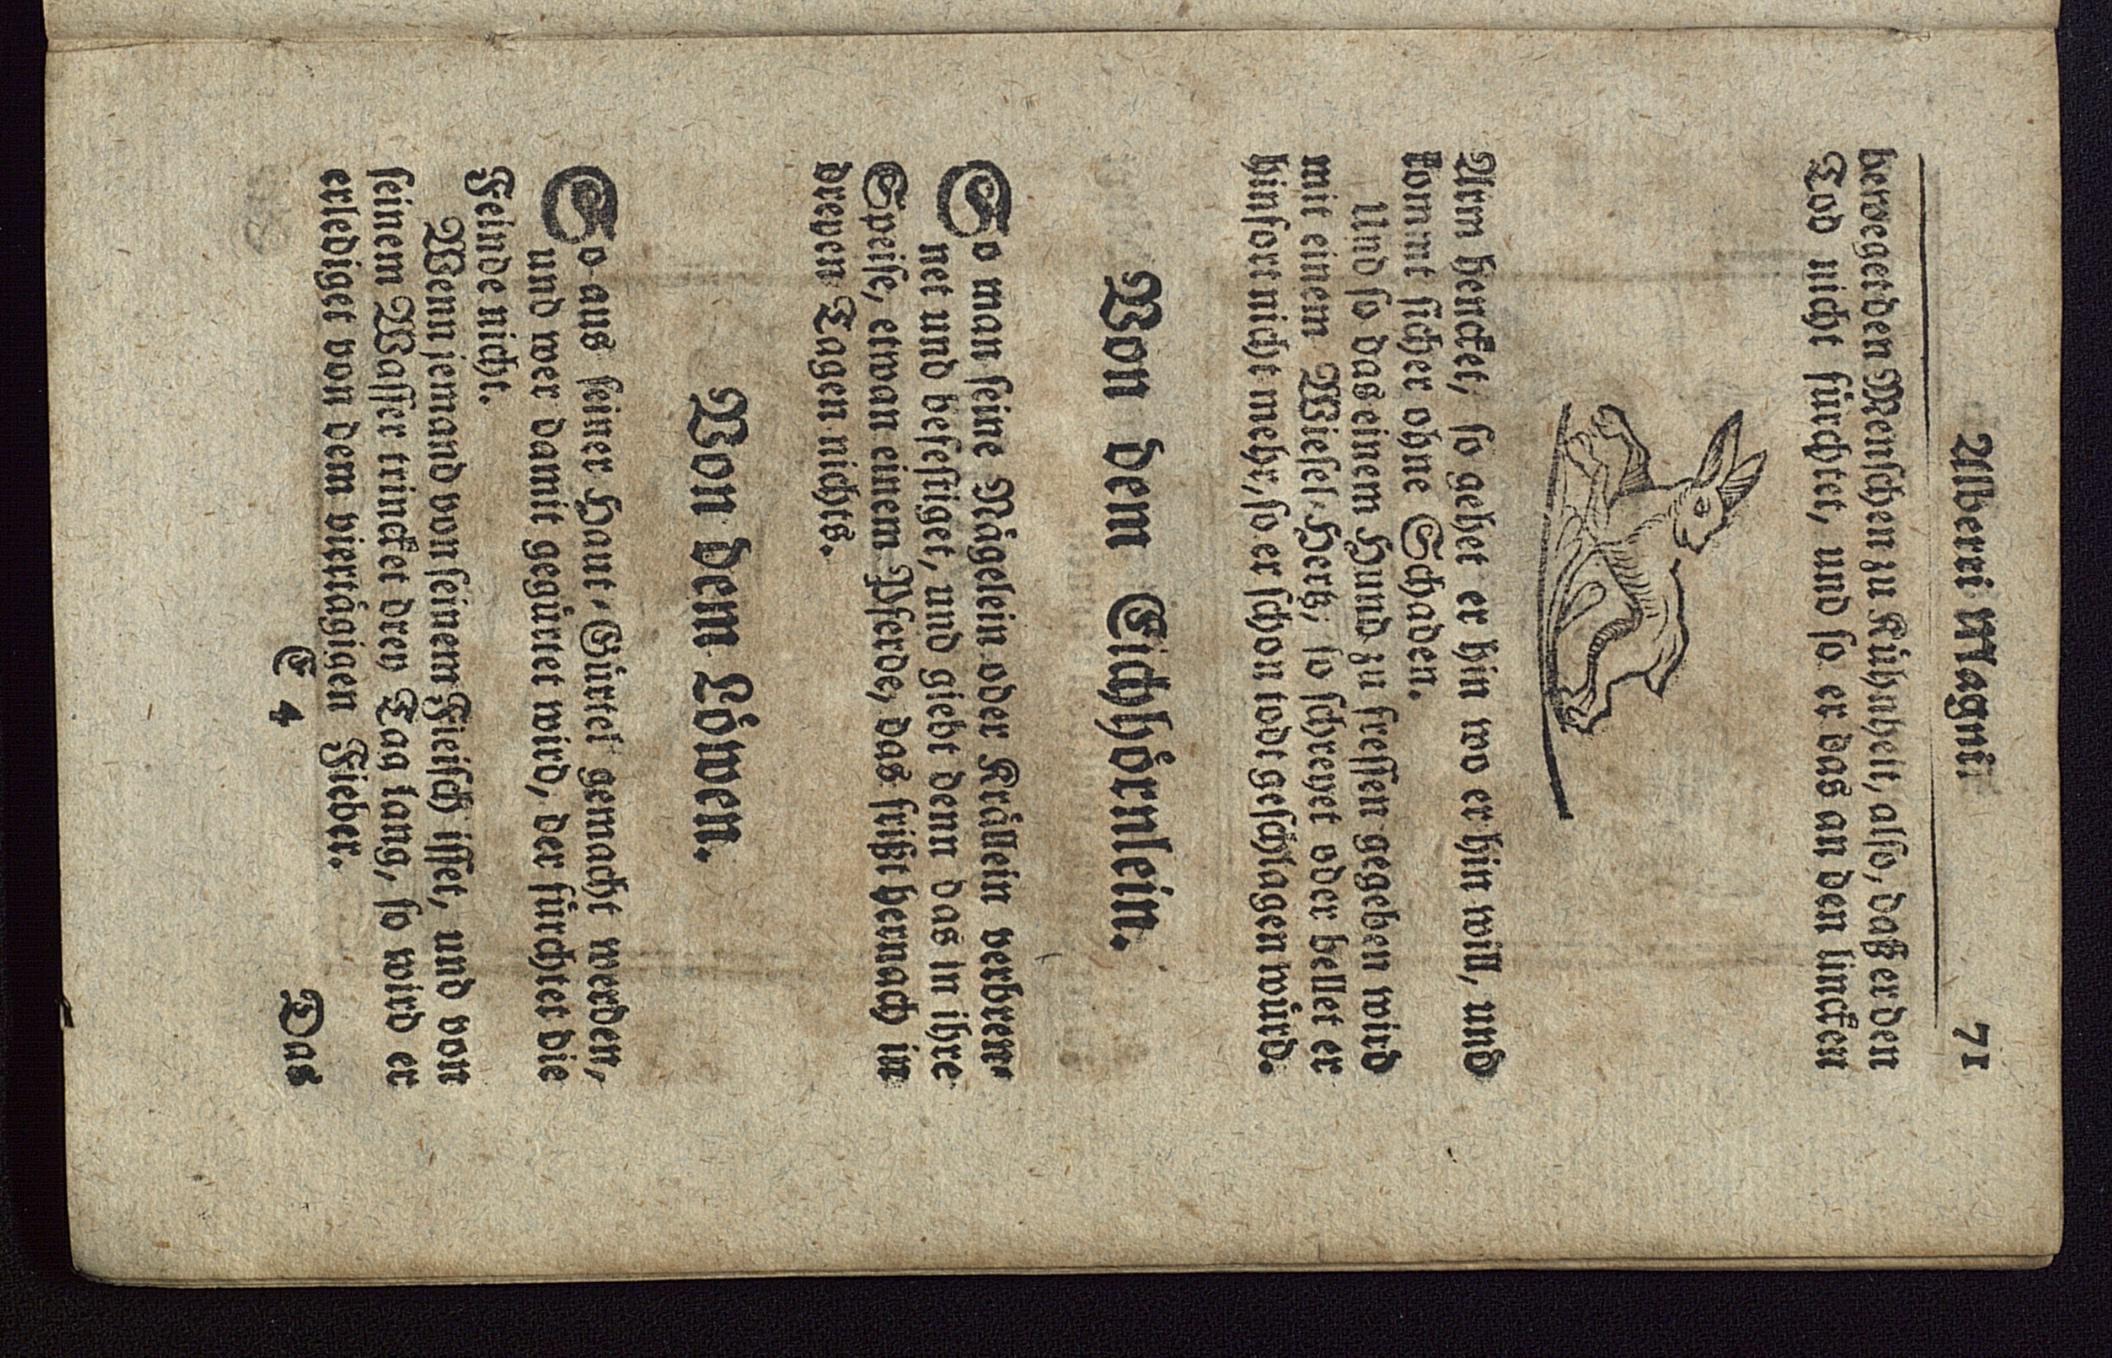 Alberti Magni. 71
beweget den Menschen zu Kühnheit, also, daß er den
Tod nicht fürchtet, und so er das an den lincken
Arm hencket, so gehet er hin wo er hin will, und
kommt sicher ohne Schaden.
Und so das einem Hund zu fressen gegeben wird
mit einem Wiesel-Hertz, so schreyet oder bellet er
hinfort nicht mehr, so er schon todt geschlagen würd.
Von dem Eichhörnlein.
So man seine Nägelein oder Krällein verbren-
net und befestiget, und giebt denn das in ihre
Speise, etwan einem Pferde, das frißt hernach in
dreyen Tagen nichts.
Von dem Löwen.
So aus seiner Haut-Gürtel gemacht werden,
und wer damit gegürtet wird, der fürchtet die
Feinde nicht.
Wenn jemand von seinem Fleisch isset, und von
seinem Wasser trincket drey Tag lang, so wird er
erlediget von dem viertägigen Fieber.
E 4 Das